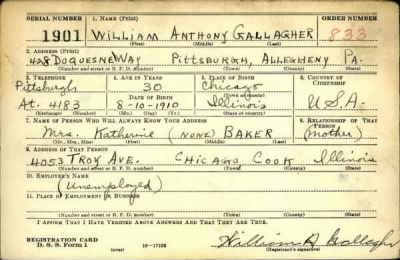 SERIAL NUMBER 1. NAME (Print) ORDER NUMBER
1901 WILLIAM ANTHONY GALLAGHER 833
(First) (Middle) (Last)
2. ADDRESS (Print)
428 DUQUESNE WAY PITTSBURGH, ALLEGHENY PA.
(Number and street or R. F. D. number) (Town) (County) (State)
3. TELEPHONE 4. AGE IN YEARS 5. PLACE OF BIRTH 6. COUNTRY OF CITIZENSHIP
Pittsburgh 30 Chicago
DATE OF BIRTH (Town or county)
At. 4183 8-10-1910 Illinois U.S.A.
(Exchange) (Number) (Mo.) (Day) (Yr.) (State or country)
7. NAME OF PERSON WHO WILL ALWAYS KNOW YOUR ADDRESS 8. RELATIONSHIP OF THAT PERSON
Mrs. Katherine (NONE) BAKER (mother)
(Mr., Mrs., Miss) (First) (Middle) (Last)
9. ADDRESS OF THAT PERSON
4053 TROY AVE. CHICAGO COOK Illinois
(Number and street or R. F. D. number) (Town) (County) (State)
10. EMPLOYER'S NAME
(Unemployed)
11. PLACE OF EMPLOYMENT OR BUSINESS
(Number and street or R. F. D. number) (Town) (County) (State)
I AFFIRM THAT I HAVE VERIFIED ABOVE ANSWERS AND THAT THEY ARE TRUE.
REGISTRATION CARD
D. S. S. Form 1 (over) 16-17105 William A Gallagher
(Registrant's signature)